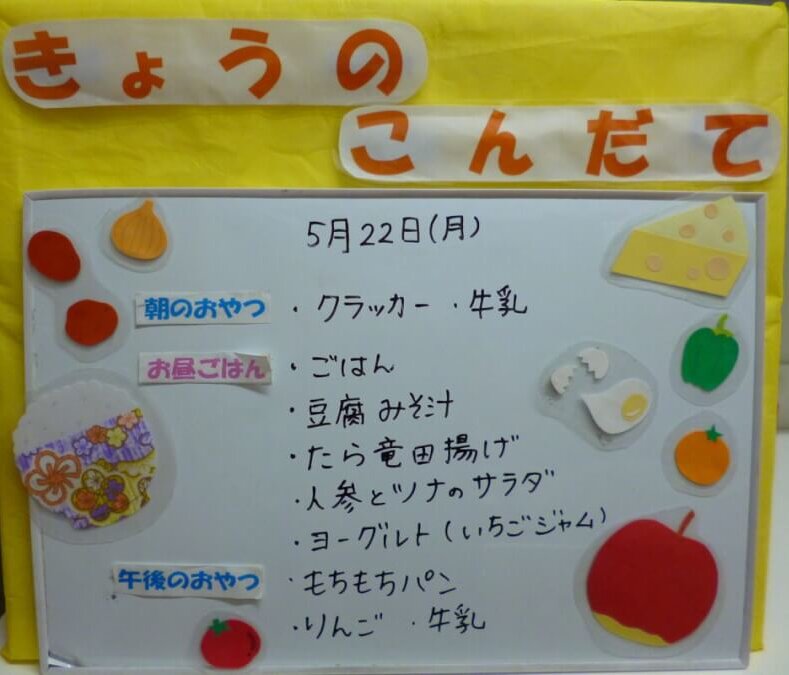 きょうの
こんだて
5月22日(月)
朝のおやつ ・クラッカー ・牛乳
お昼ごはん ・ごはん
・豆腐みそ汁
・たら竜田揚げ
・人参とツナのサラダ
・ヨーグルト(いちごジャム)
午後のおやつ ・もちもちパン
・りんご ・牛乳